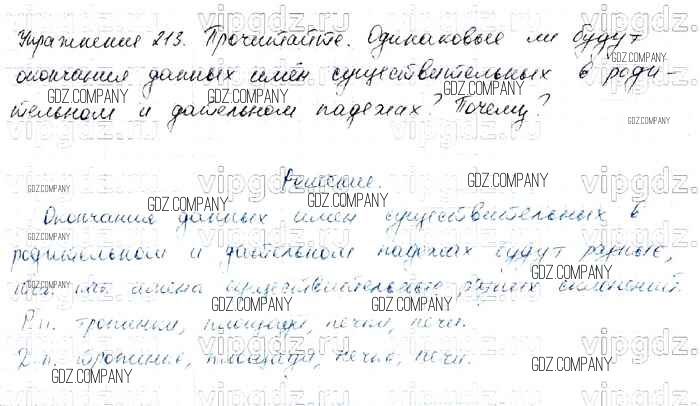 Упражнение 213. Прочитайте. Одинаковые ли будут
окончания данных имён существительных в роди-
тельном и дательном падежах? Почему?
Решение.
Окончания данных имен существительных в
родительном и дательном падежах будут разные,
имена существительные разных склонений.
Р.п. тропинки, площади, печки, печи.
Д.п. тропинке, площади, печке, печи.